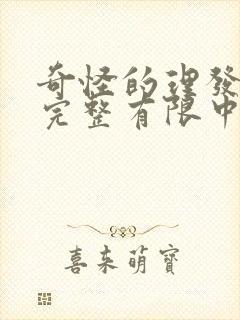 奇怪的理發
完整有限中
喜来萌寶